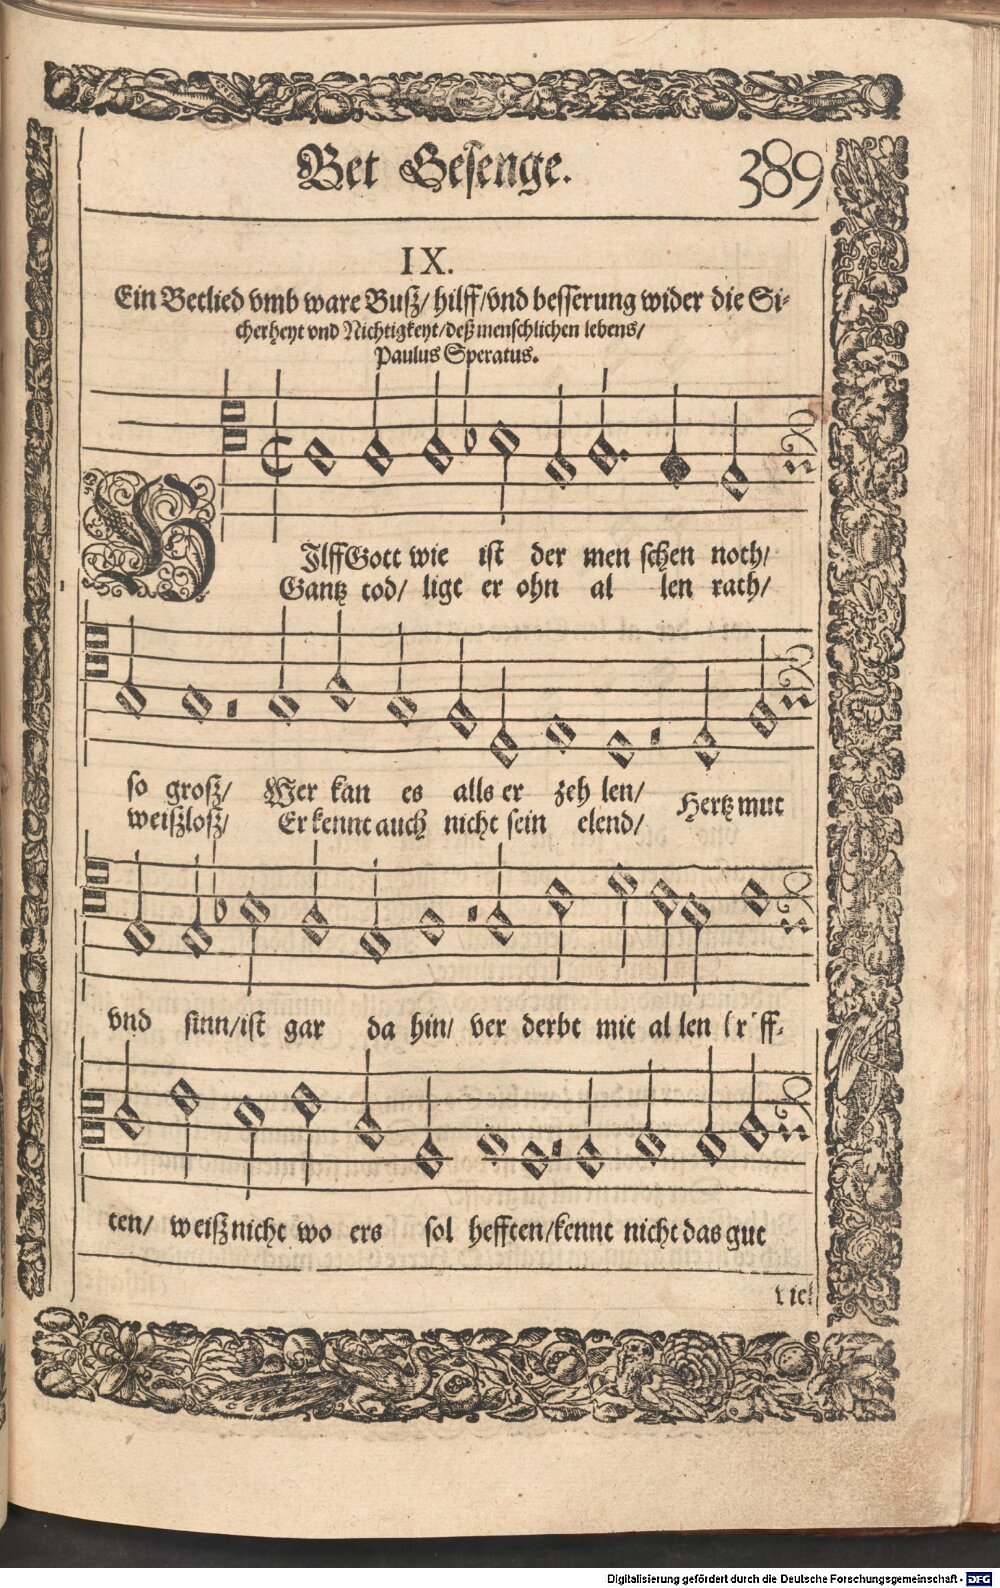 Bet Gesenge.
389
IX.
Ein Betlied vmb ware Buſz/ hilff/vnd beſſerung wider die Si-
cherheyt vnd Nichtigkeyt/deß menſchlichen lebens/
Paulus Speratus.
HJlff Gott wie iſt der men ſchen noth/
Gantz tod/ ligt er ohn al len rath/
ſo groſz/ Wer kan es alls er zeh len/ Hertz mut
weiſzloſz/ Er kennt auch nicht ſein elend/
vnd ſinn/iſt gar da hin/ ver derbt mit al len kreff-
ten/ weiſz nicht wo ers ſol hefften/kennt nicht das gut
viel
Digitalisierung gefördert durch die Deutsche Forschungsgemeinschaft - DFG